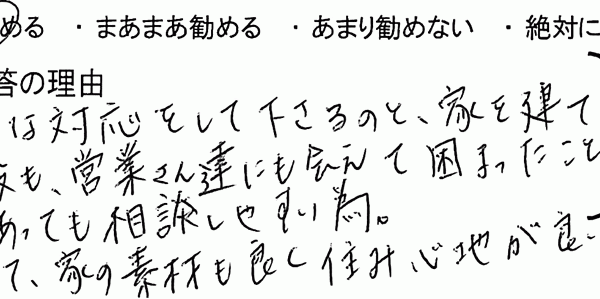 める ・まあまあ勧める ・あまり勧めない ・絶対に
答の理由
は対応をして下さるのと、家を建て
も、営業さん達にも会えて困ったこと
あっても相談しやすい為。
て、家の素材も良く住み心地が良い